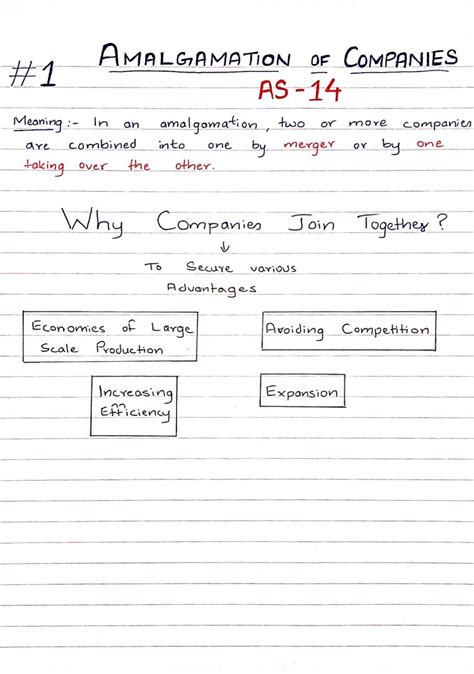 #1
AMALGAMATION OF COMPANIES
AS-14
Meaning :- In an amalgamation, two or more companies
are combined into one by merger or by one
taking over the other.
Why Companies Join Together?
↓
To Secure various
Advantages
Economies of Large
Scale Production
Avoiding Competition
Increasing
Efficiency
Expansion